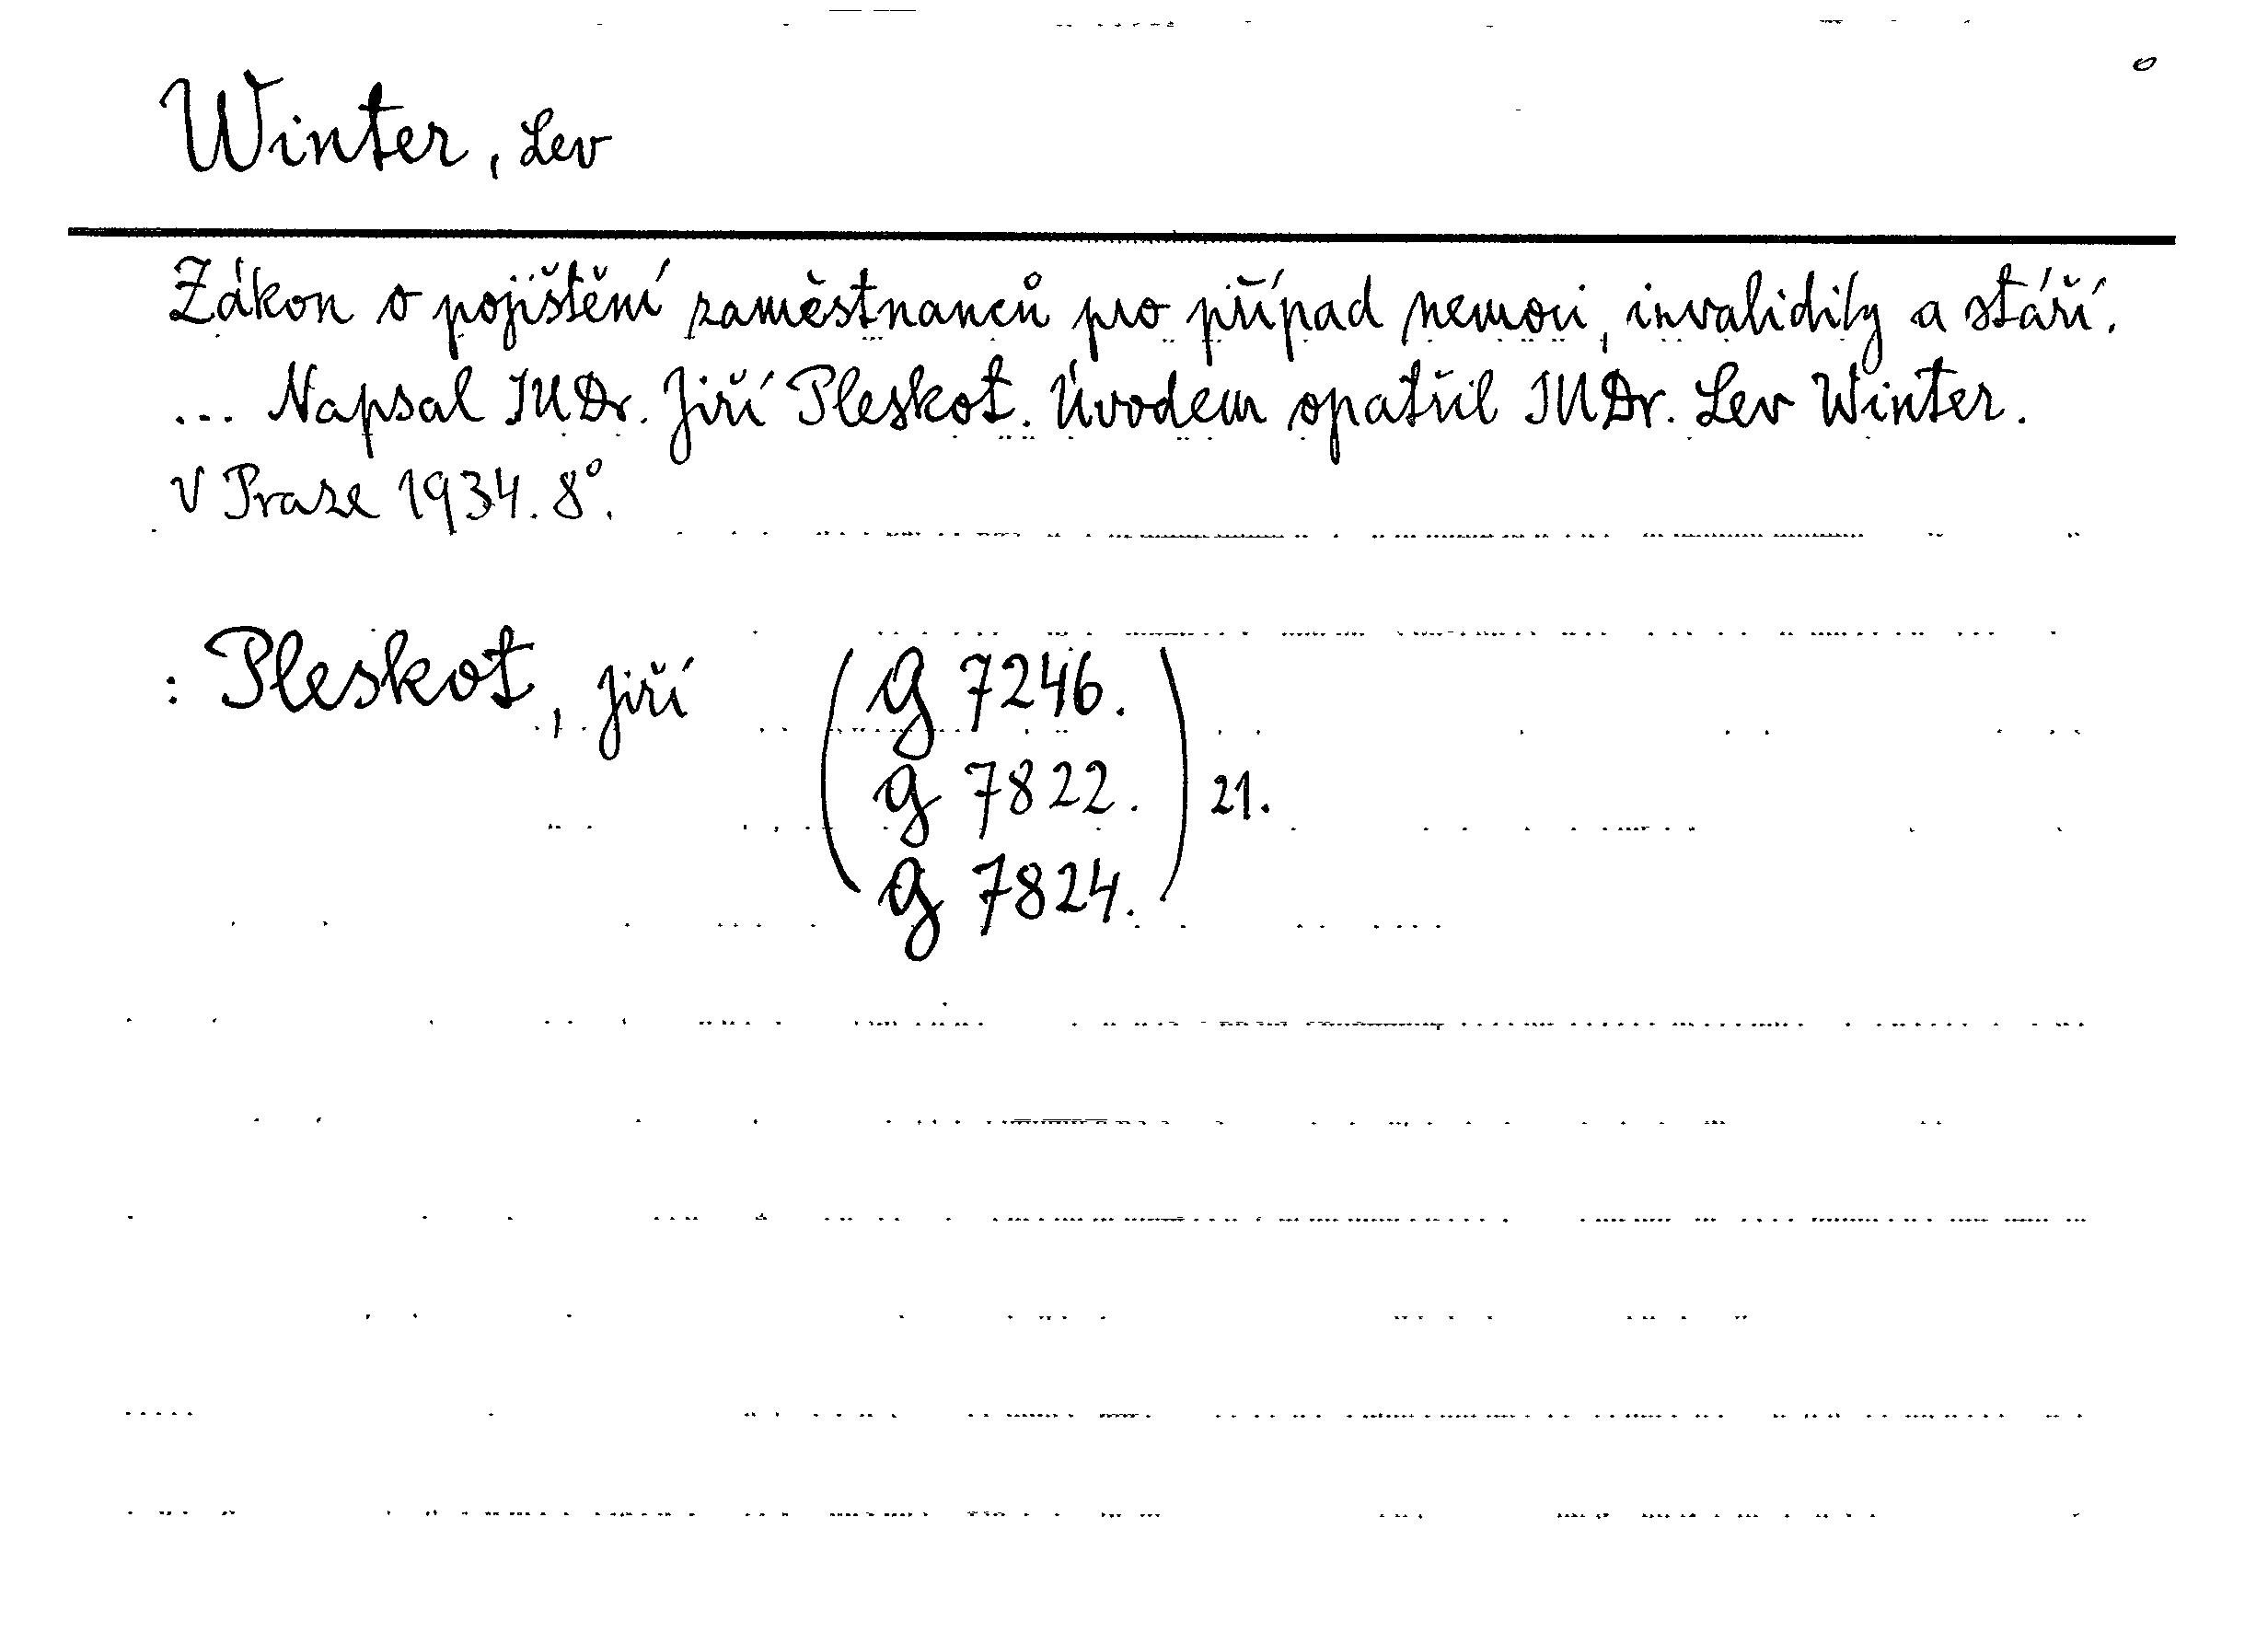 Winter, Lev
Zákon o pojištění zaměstnanců pro případ nemoci, invalidity a stáří.
... Napsal JUDr. Jiří Pleskot. Úvodem opatřil JUDr. Lev Winter.
V Praze 1934. 8°.
: Pleskot, Jiří
g 7246.
g 7822. 21.
g 7824.